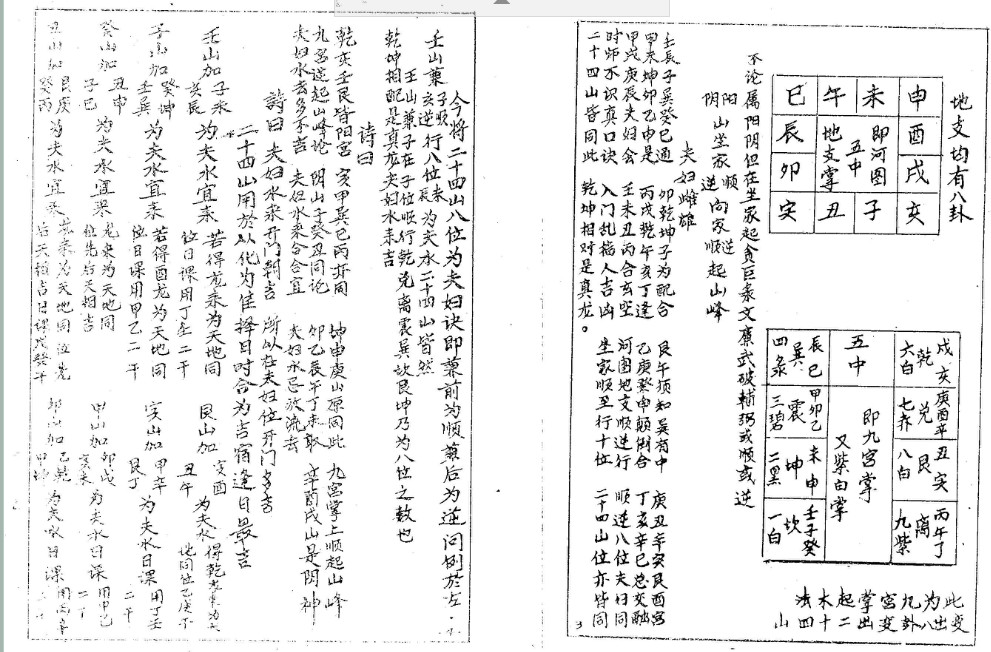 地支均有八卦
巳 午 未 申
辰 地支掌 即河图 五中 酉
卯 戌
寅 丑 子 亥
五中 即九宫掌 又紫白掌
戌乾亥 六白
庚酉辛 兑 七赤
丑艮寅 八白
丙午丁 离 九紫
辰巽巳 四录
甲卯乙 震 三碧
未坤申 二黑
壬子癸 坎 一白
此变
为出
九八
宫卦
掌变
起出
木二
法十
四
山
不论属阳阴但在坐家起贪巨彔文廉武破輔弼或順或逆
阳山坐家順
阴 逆向家順起山峰
夫妇雌雄
壬辰子巽癸巳通 卯乾坤子为配合 艮午须知巽有中 庚丑辛寅艮酉宫
甲未坤卯乙申是 丙戌乾午亥丁逢 乙庚癸申顛倒合 丁亥辛巳总交融
甲戌庚辰夫妇会 壬未丑丙合玄空 河图地支順逆行 順逆八位夫妇同
时师不识真口诀 入门乱指人吉凶 坐家順至行十位 二十四山位亦皆同
二十四山皆同此 乾坤相对是真龙。
3
今將二十四山八位为夫妇诀即兼前为順兼后为逆问例於左
壬山兼子順行八位未为夫水二十四山皆然
亥逆 辰
壬山兼子在子位順行乾兑離震巽坎艮坤乃为八位之数也
乾坤相配是真龙夫妇水来吉
詩曰
乾亥壬艮皆阳宫 亥甲巽巳丙亦同 坤申庚山原同此 九宫掌上順起山峰
九宫逆起山峰论 阴山子癸丑同论 卯乙辰午丁未取 辛酉戌山是阴神
夫妇水去多不吉 夫妇水来合合宜 夫妇水忌放流去
詩曰 夫妇水来开门朝吉 所以在夫妇位开门多吉
二十四山用於以化为佳择日时合为吉宿逢日最吉
壬山加 子未 亥辰 为夫水宜来 若得龙来为天地同位日课用丁壬二干
子山加 癸坤 壬巽 为夫水宜来 若得酉龙为天地同位日课用甲乙二干
癸山加 丑申 子巳 为夫水宜来 龙来为天地同位先后天相吉
丑山加 艮庚 癸丙 为夫水宜来
艮山加 寅酉 丑午 为夫水
寅山加 甲辛 艮丁 为夫水日课用丁壬二干
甲山加 卯戌 寅未 为夫水日课用甲己二干
卯山加 乙乾 甲坤 为夫水日课